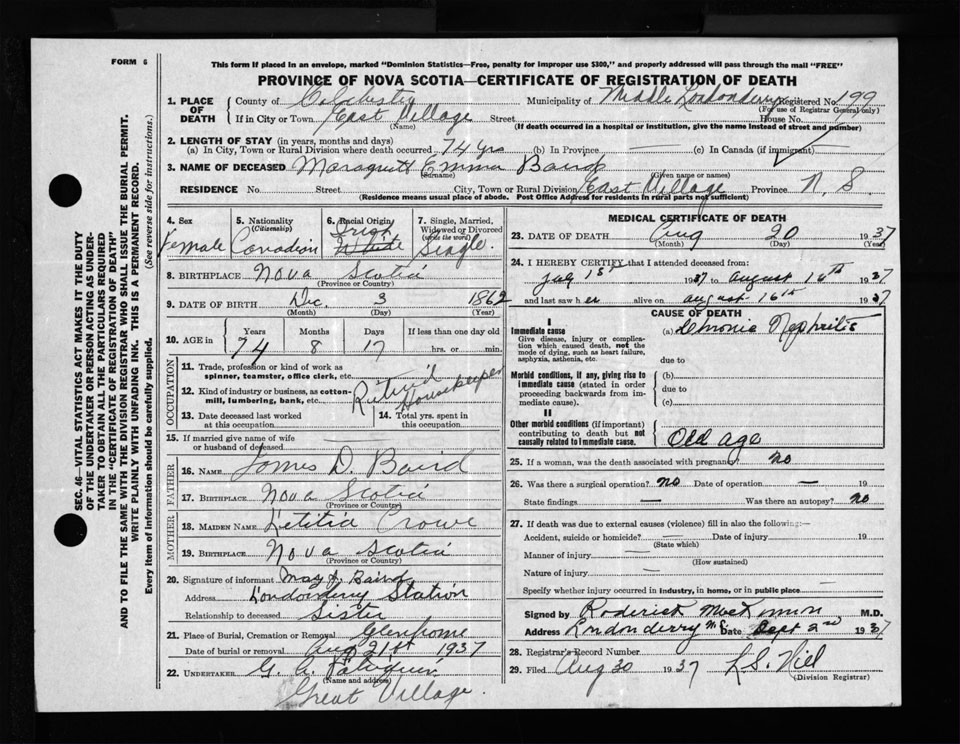 FORM 6
This form if placed in an envelope, marked "Dominion Statistics—Free, penalty for improper use $300," and properly addressed will pass through the mail "FREE"
PROVINCE OF NOVA SCOTIA—CERTIFICATE OF REGISTRATION OF DEATH
1. PLACE OF DEATH
County of Colchester Municipality of Middle Londonderry Registered No. 199
(For use of Registrar General only)
If in City or Town East Village Street House No.
(Name) (If death occurred in a hospital or institution, give the name instead of street and number)
2. LENGTH OF STAY (in years, months and days)
(a) In City, Town or Rural Division where death occurred 74 yrs (b) In Province — (c) In Canada (if immigrant)
3. NAME OF DECEASED Emma Baird
(Surname) (Given name or names)
RESIDENCE No. Street City, Town or Rural Division East Village Province N. S.
(Residence means usual place of abode. Post Office Address for residents in rural parts not sufficient)
4. Sex 5. Nationality (Citizenship) 6. Racial Origin 7. Single, Married, Widowed or Divorced (write the word)
Female Canadian Irish White Single.
8. BIRTHPLACE Nova Scotia
(Province or Country)
9. DATE OF BIRTH Dec. 3 1862
(Month) (Day) (Year)
10. AGE in Years Months Days If less than one day old
74 8 17 hrs. or min.
OCCUPATION
11. Trade, profession or kind of work as spinner, teamster, office clerk, etc.
12. Kind of industry or business, as cotton-mill, lumbering, bank, etc.
Retired Housekeeper
13. Date deceased last worked at this occupation 14. Total yrs. spent in this occupation
15. If married give name of wife or husband of deceased
FATHER
16. NAME James D. Baird
17. BIRTHPLACE Nova Scotia
(Province or Country)
MOTHER
18. MAIDEN NAME Letitia Crowe
19. BIRTHPLACE Nova Scotia
(Province or Country)
20. Signature of informant Baird
Address Londonderry Station
Relationship to deceased Sister
21. Place of Burial, Cremation or Removal Glenholme
Date of burial or removal Aug 21st 1937
22. UNDERTAKER G. A.
(Name and address)
Great Village.
MEDICAL CERTIFICATE OF DEATH
23. DATE OF DEATH Aug 20 1937
(Month) (Day) (Year)
24. I HEREBY CERTIFY that I attended deceased from:
July 1st 1937 to August 16th 1937
and last saw her alive on August 16th 1937
CAUSE OF DEATH
I
Immediate cause
Give disease, injury or complication which caused death, not the mode of dying, such as heart failure, asphyxia, asthenia, etc.
(a) Chronic Nephritis
due to
Morbid conditions, if any, giving rise to immediate cause (stated in order proceeding backwards from immediate cause).
(b)
due to
(c)
II
Other morbid conditions (if important) contributing to death but not causally related to immediate cause.
Old age
25. If a woman, was the death associated with pregnancy? no
26. Was there a surgical operation? no Date of operation — 19
State findings — Was there an autopsy? no
27. If death was due to external causes (violence) fill in also the following:—
Accident, suicide or homicide? — Date of injury 19
(State which)
Manner of injury —
(How sustained)
Nature of injury —
Specify whether injury occurred in industry, in home, or in public place —
Signed by Roderick M.D.
Address Londonderry N.S. Date Sept 2nd 1937
28. Registrar's Record Number
29. Filed Aug 30 1937 L. S. Hill
(Division Registrar)
SEC. 46—VITAL STATISTICS ACT MAKES IT THE DUTY
OF THE UNDERTAKER OR PERSON ACTING AS UNDER-
TAKER TO OBTAIN ALL THE PARTICULARS REQUIRED
IN THE "CERTIFICATE OF REGISTRATION OF DEATH"
AND TO FILE THE SAME WITH THE DIVISION REGISTRAR WHO SHALL ISSUE THE BURIAL PERMIT.
WRITE PLAINLY WITH UNFADING INK. THIS IS A PERMANENT RECORD.
Every item of information should be carefully supplied. (See reverse side for instructions.)